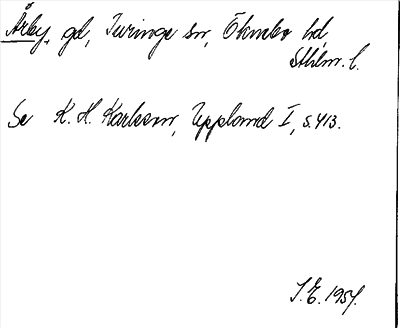 Årby, gd, Turinge sn, Öknebo hd,
Sthlm. l.
Se K. H. Karlsson, Uppland I, s. 413.
J. E. 1954.